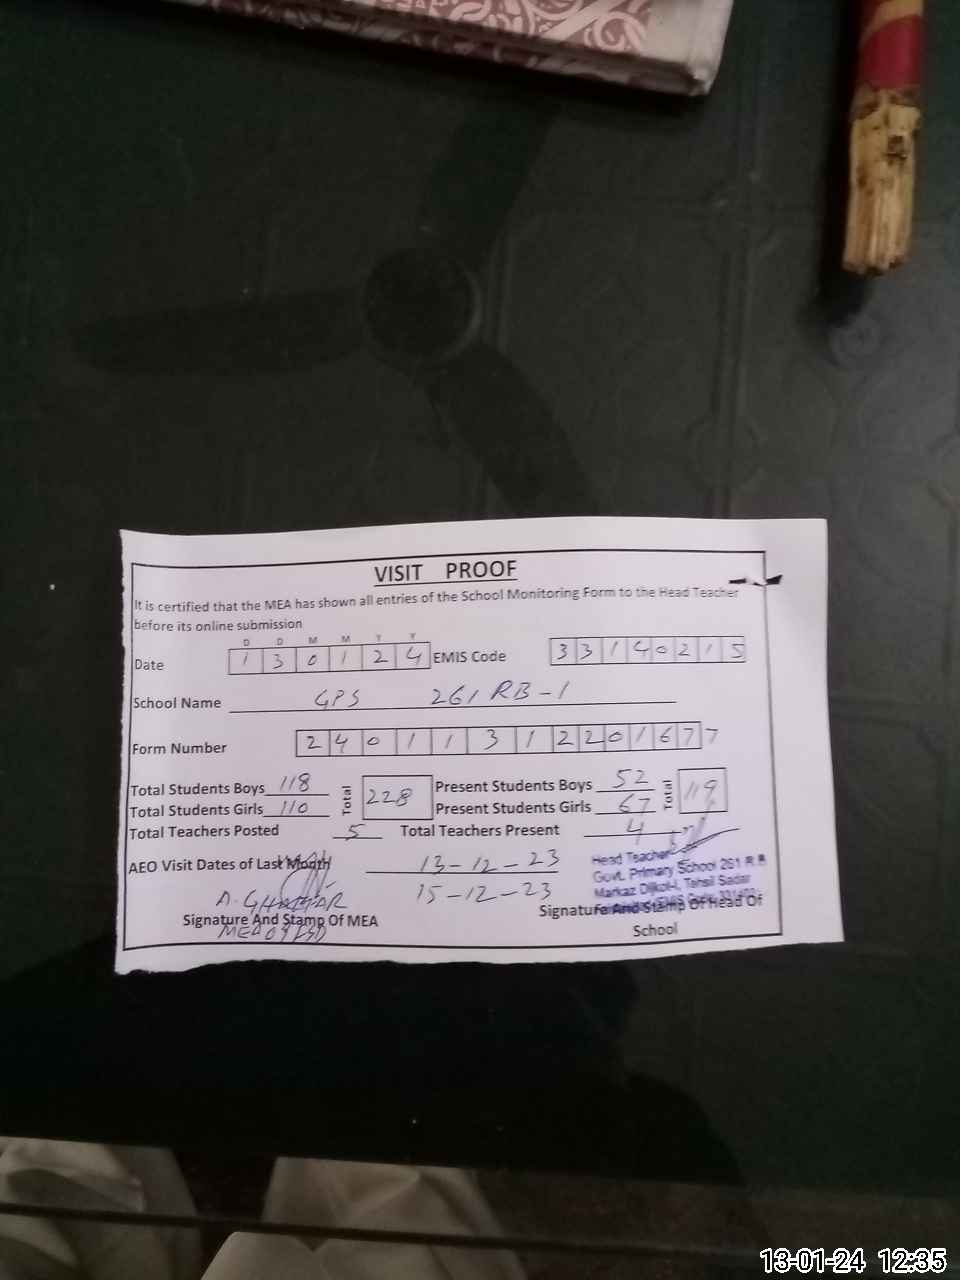 VISIT PROOF
It is certified that the MEA has shown all entries of the School Monitoring Form to the Head Teacher
before its online submission
D D M M Y Y
Date 1 3 0 1 2 4 EMIS Code 3 3 1 4 0 2 1 5
School Name GPS 261 RB-1
Form Number 2 4 0 1 1 3 1 2 2 0 1 6 7 7
Total Students Boys 118 Total 228 Present Students Boys 52 Total 119
Total Students Girls 110 Present Students Girls 67
Total Teachers Posted 5 Total Teachers Present 4
AEO Visit Dates of Last Month 13-12-23
15-12-23
Head Teacher
Govt. Primary School 261
Markaz Tehsil Sadar
A. GHAFFAR
Signature And Stamp Of MEA
MEA 09 FSD
Signature And Stamp Of Head Of
School
13-01-24 12:35